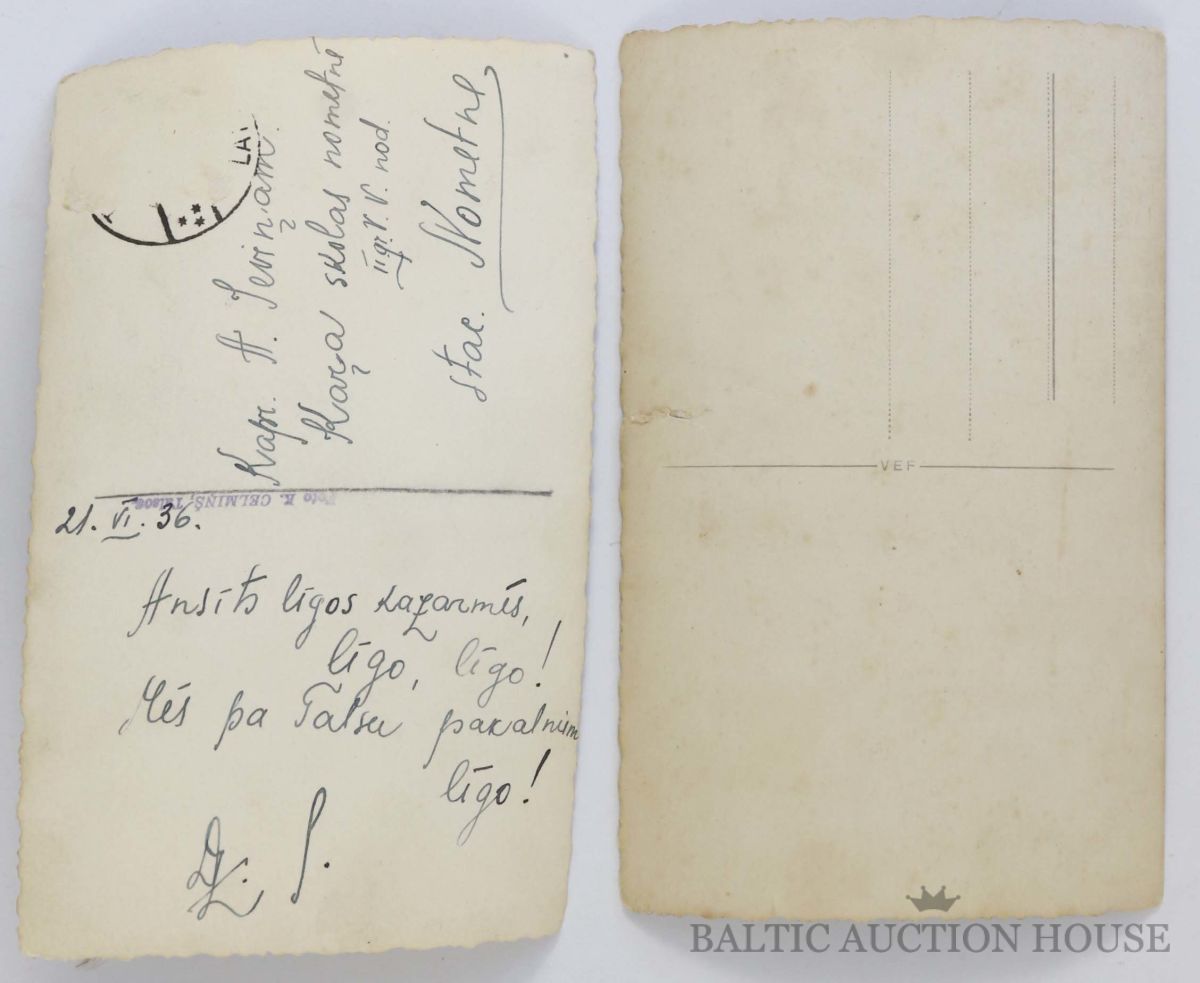 LA
Kapr. A. Seviņam.
Kaŗa skolas nometnē
V. nod.
stac. Nometne
Foto K. CELMIŅŠ, Talsos.
21. VI. 36.
Ansīts līgos kazarmēs,
līgo, līgo!
Mēs pa Talsu pakalniem
līgo!
S.
VEF
BALTIC AUCTION HOUSE